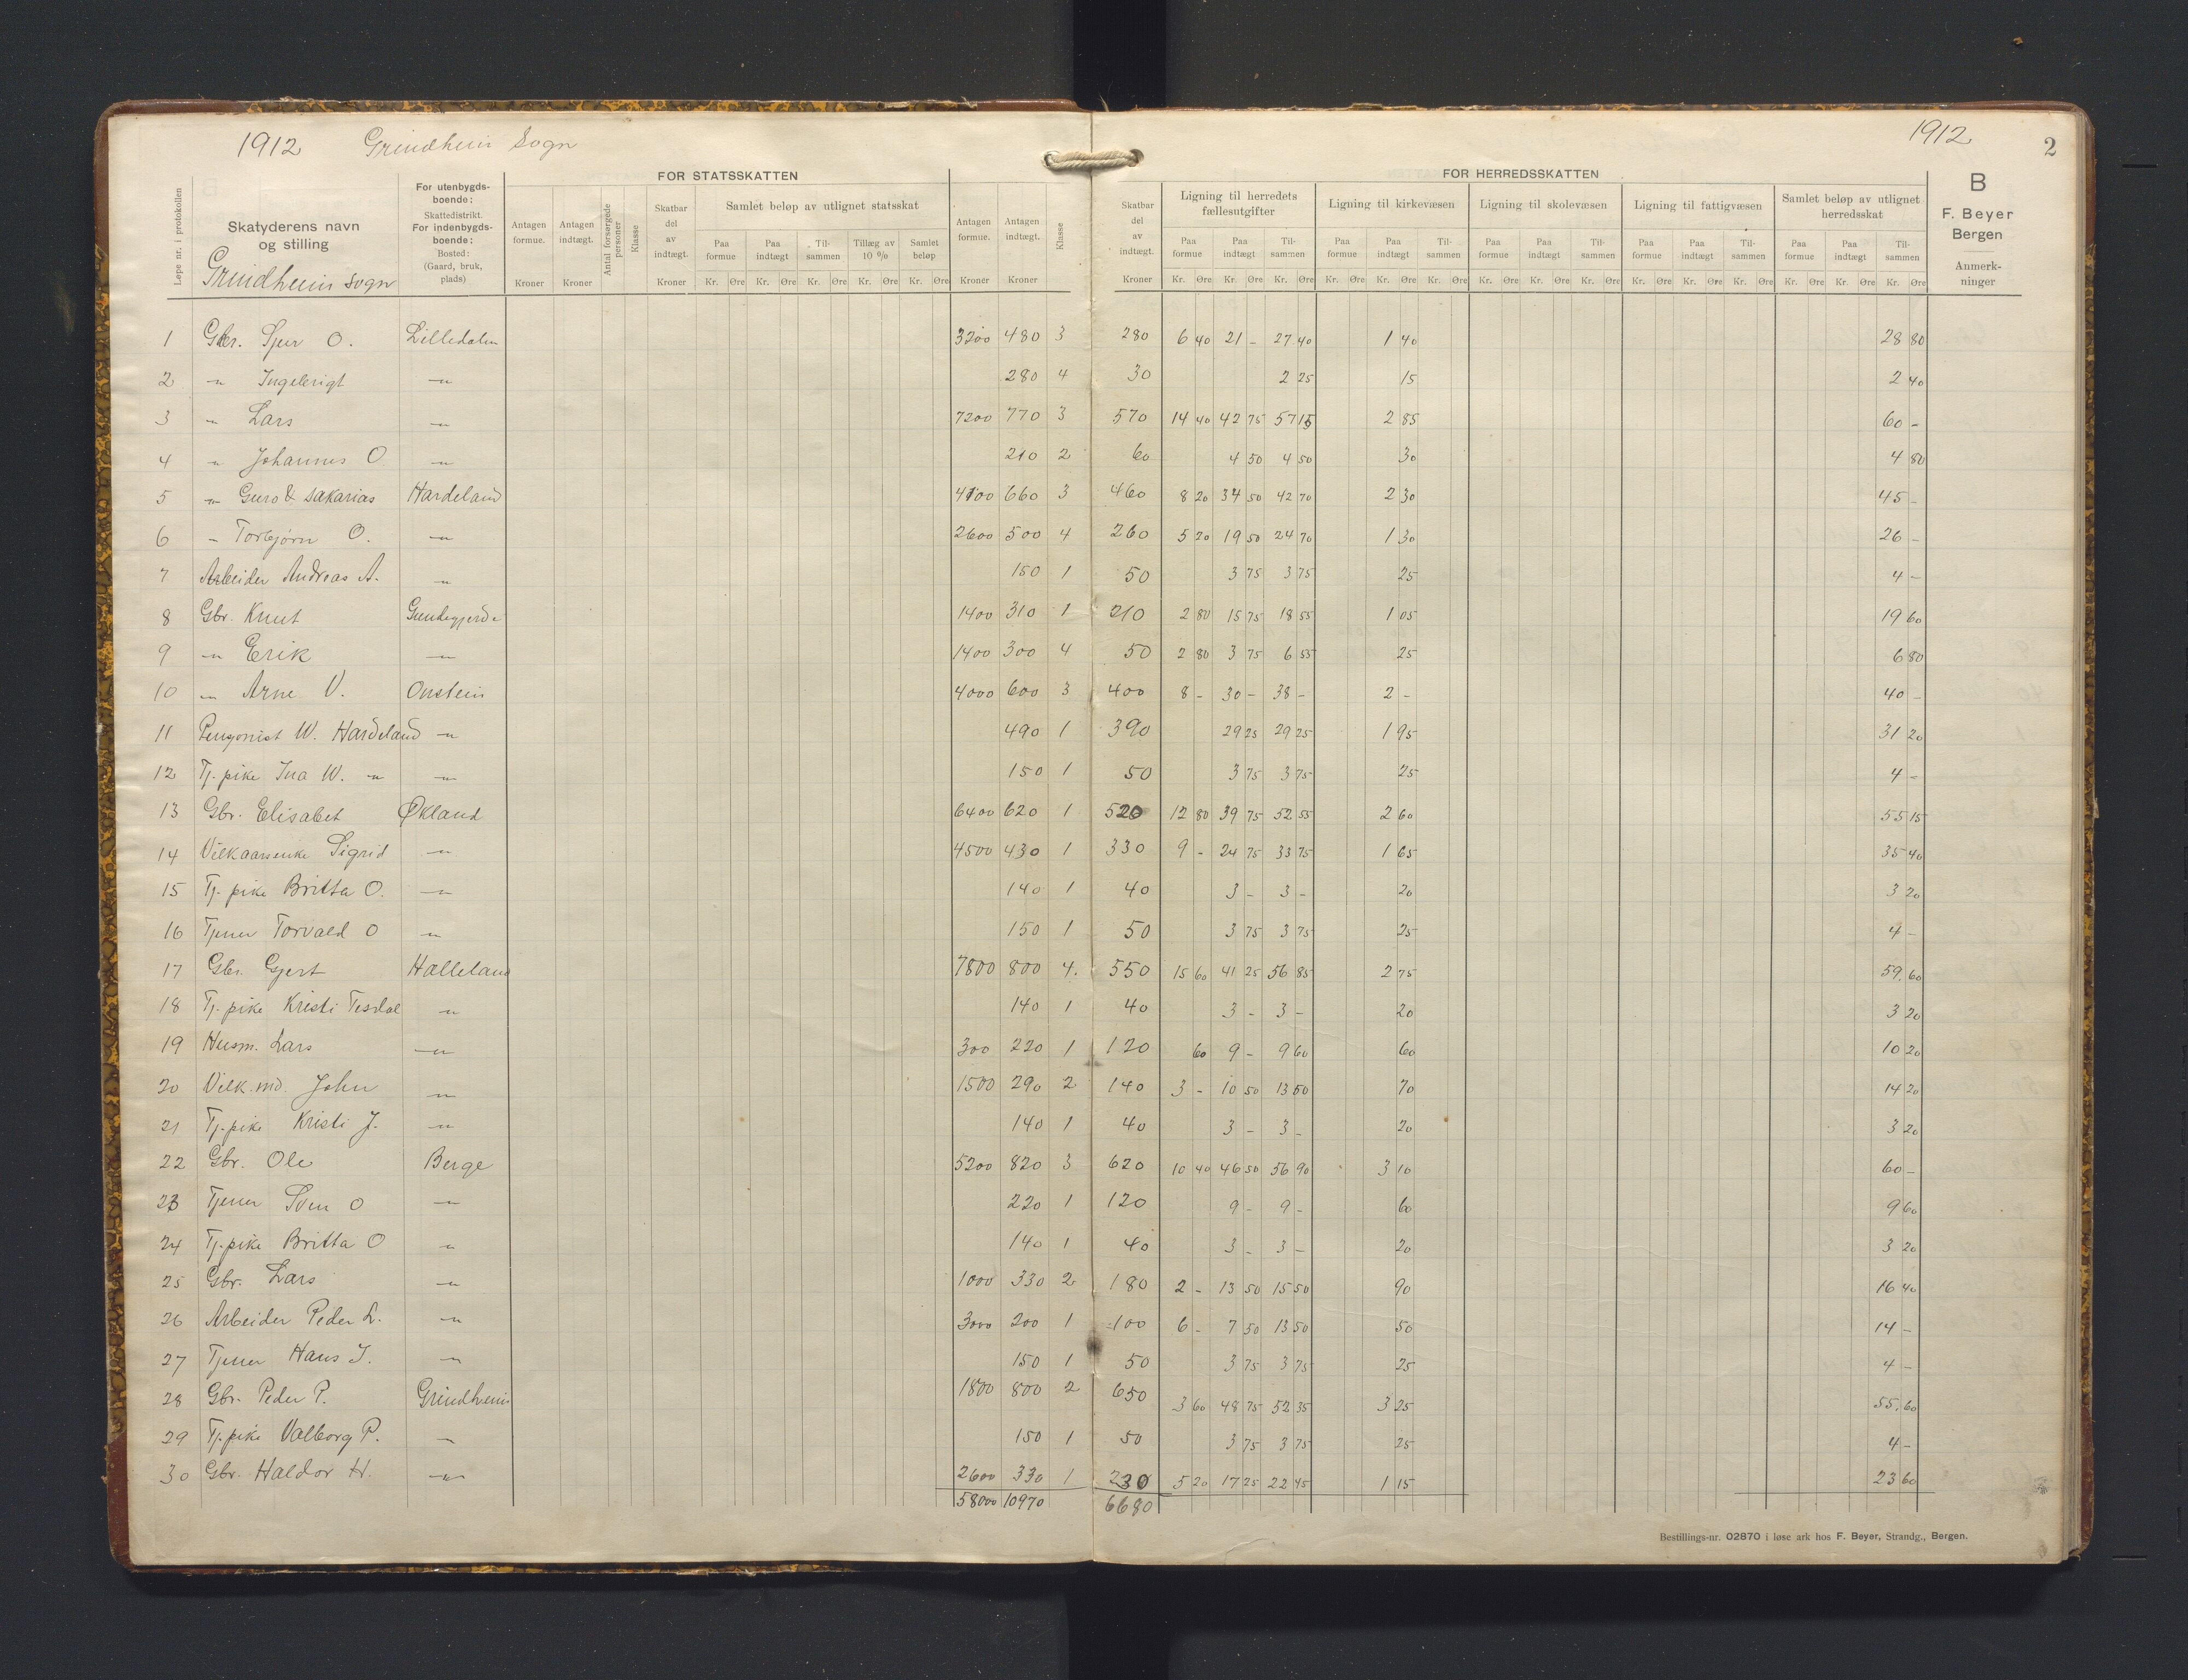 1912 Grindheim Sogn 1912 2
FOR STATSSKATTEN FOR HERREDSSKATTEN
Løpe nr. i protokollen
Skatyderens navn og stilling
Grindheim sogn
For utenbygds-boende: Skattedistrikt. For indenbygds-boende: Bosted: (Gaard, bruk, plads)
Antagen formue. Kroner
Antagen indtægt. Kroner
Antal forsørgede personer
Klasse
Skatbar del av indtægt. Kroner
Samlet beløp av utlignet statsskat
Paa formue Kr. Øre Paa indtægt Kr. Øre Til-sammen Kr. Øre Tillæg av 10 % Kr. Øre Samlet beløp Kr. Øre
Antagen formue. Kroner
Antagen indtægt. Kroner
Klasse
Skatbar del av indtægt. Kroner
Ligning til herredets fællesutgifter
Paa formue Kr. Øre Paa indtægt Kr. Øre Til-sammen Kr. Øre
Ligning til kirkevæsen
Paa formue Kr. Øre Paa indtægt Kr. Øre Til-sammen Kr. Øre
Ligning til skolevæsen
Paa formue Kr. Øre Paa indtægt Kr. Øre Til-sammen Kr. Øre
Ligning til fattigvæsen
Paa formue Kr. Øre Paa indtægt Kr. Øre Til-sammen Kr. Øre
Samlet beløp av utlignet herredsskat
Paa formue Kr. Øre Paa indtægt Kr. Øre Til-sammen Kr. Øre
B
F. Beyer
Bergen
Anmerk-ninger
1 Gbr. Sjur O. Lilledalen 3200 480 3 280 6 40 21 - 27 40 1 40 28 80
2 -"- Ingebrigt -"- 280 4 30 2 25 15 2 40
3 -"- Lars -"- 7200 770 3 570 14 40 42 75 57 15 2 85 60 -
4 -"- Johannes O -"- 210 2 60 4 50 4 50 30 4 80
5 -"- Guro & Sakarias Hardeland 4100 660 3 460 8 20 34 50 42 70 2 30 45 -
6 -"- Torbjørn O. -"- 2600 500 4 260 5 20 19 50 24 70 1 30 26 -
7 Arbeider Andreas A. -"- 150 1 50 3 75 3 75 25 4 -
8 Gbr. Knut 1400 310 1 210 2 80 15 75 18 55 1 05 19 60
9 -"- Erik -"- 1400 300 4 50 2 80 3 75 6 55 25 6 80
10 -"- Arne V. Onstein 4000 600 3 400 8 - 30 - 38 - 2 - 40 -
11 Pensjonist W. Hardeland -"- 490 1 390 29 25 29 25 1 95 31 20
12 Tj. pike Ina W. -"- -"- 150 1 50 3 75 3 75 25 4 -
13 Gbr. Elisabet Økland 6400 620 1 520 12 80 39 75 52 55 2 60 55 15
14 Vilkaarsenke Sigrid -"- 4500 430 1 330 9 - 24 75 33 75 1 65 35 40
15 Tj. pike Britta O. -"- 140 1 40 3 - 3 - 20 3 20
16 Tjener Torvald O -"- 150 1 50 3 75 3 75 25 4 -
17 Gbr. Gjert Halleland 7800 800 4. 550 15 60 41 25 56 85 2 75 59. 60
18 Tj. pike Kristi Tesdal -"- 140 1 40 3 - 3 - 20 3 20
19 Husm. Lars -"- 300 220 1 120 60 9 - 9 60 60 10 20
20 Vilk.md. John -"- 1500 290 2 140 3 - 10 50 13 50 70 14 20
21 Tj. pike Kristi J. -"- 140 1 40 3 - 3 - 20 3 20
22 Gbr. Ole Berge 5200 820 3 620 10 40 46 50 56 90 3 10 60 -
23 Tjener Sven O -"- 220 1 120 9 - 9 - 60 9 60
24 Tj. pike Britta O -"- 140 1 40 3 - 3 - 20 3 20
25 Gbr. Lars -"- 1000 330 2 180 2 - 13 50 15 50 90 16 40
26 Arbeider Peder L. -"- 3000 200 1 100 6 - 7 50 13 50 50 14 -
27 Tjener Hans J. -"- 150 1 50 3 75 3 75 25 4 -
28 Gbr. Peder P. Grindheim 1800 800 2 650 3 60 48 75 52 35 3 25 55. 60
29 Tj. pike Valborg P. -"- 150 1 50 3 75 3 75 25 4 -
30 Gbr. Haldor H. -"- 2600 330 1 230 5 20 17 25 22 45 1 15 23 60
58000 10970 6680
Bestillings-nr. 02870 i løse ark hos F. Beyer, Strandg., Bergen.